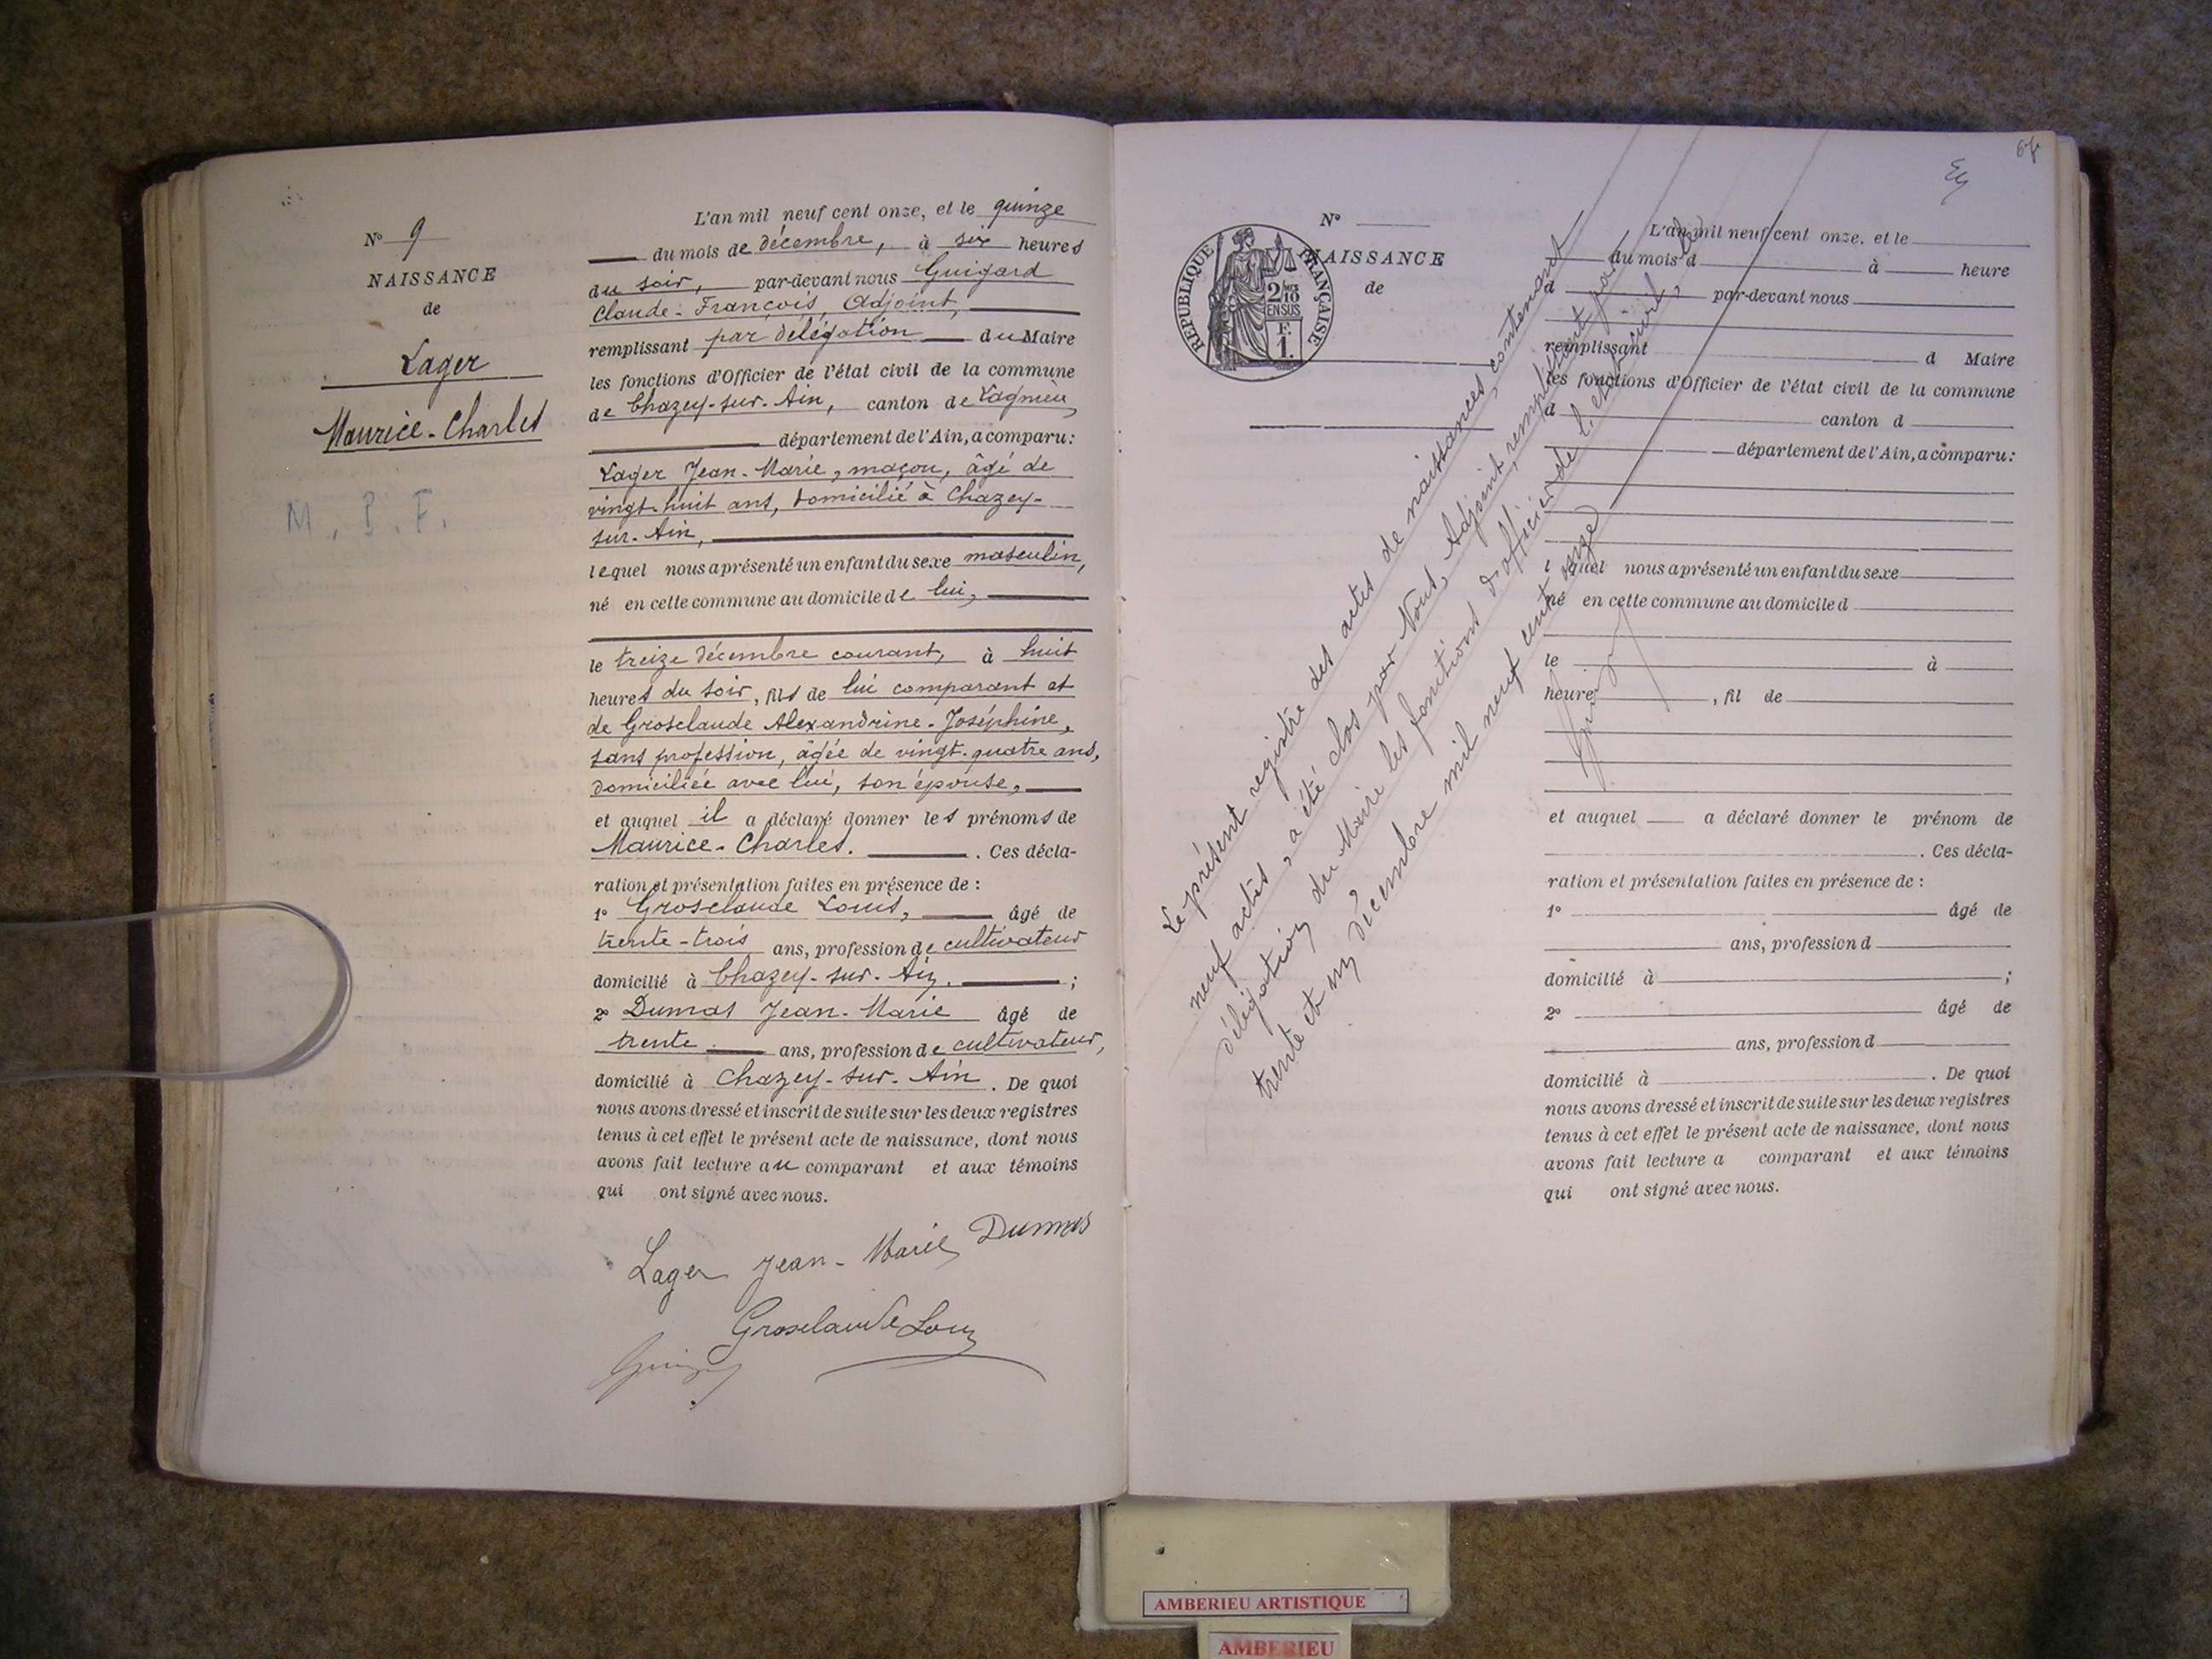 N° 9
NAISSANCE
de
Lager
Maurice-Charles
M. P. F.
L'an mil neuf cent onze, et le quinze
du mois de décembre, à six heures
du soir, par-devant nous Guigard
Claude-François, Adjoint,
remplissant par délégation du Maire
les fonctions d'Officier de l'état civil de la commune
de Chazey-sur-Ain, canton de Lagnieu,
département de l'Ain, a comparu:
Lager Jean-Marie, maçon, âgé de
vingt-huit ans, domicilié à Chazey-
sur-Ain,
lequel nous a présenté un enfant du sexe masculin,
né en cette commune au domicile de lui,
le treize décembre courant, à huit
heures du soir, fils de lui comparant et
de Grosclaude Alexandrine-Joséphine,
sans profession, âgée de vingt-quatre ans,
domiciliée avec lui, son épouse,
et auquel il a déclaré donner les prénoms de
Maurice-Charles. . Ces décla-
ration et présentation faites en présence de :
1° Grosclaude Louis, âgé de
trente-trois ans, profession de cultivateur
domicilié à Chazey-sur-Ain. ;
2° Dumas Jean-Marie âgé de
trente ans, profession de cultivateur,
domicilié à Chazey-sur-Ain. De quoi
nous avons dressé et inscrit de suite sur les deux registres
tenus à cet effet le présent acte de naissance, dont nous
avons fait lecture au comparant et aux témoins
qui ont signé avec nous.
Lager Jean-Marie Dumas
Grosclaude Louis
N°
NAISSANCE
de
REPUBLIQUE FRANÇAISE
2/10
EN SUS
F.
1.
L'an mil neuf cent onze, et le
du mois d à heure
d par-devant nous
remplissant d Maire
les fonctions d'Officier de l'état civil de la commune
d canton d
département de l'Ain, a comparu:
l quel nous a présenté un enfant du sexe
né en cette commune au domicile d
le à
heure , fil de
et auquel a déclaré donner le prénom de
. Ces décla-
ration et présentation faites en présence de :
1° âgé de
ans, profession d
domicilié à ;
2° âgé de
ans, profession d
domicilié à . De quoi
nous avons dressé et inscrit de suite sur les deux registres
tenus à cet effet le présent acte de naissance, dont nous
avons fait lecture a comparant et aux témoins
qui ont signé avec nous.
Le présent registre des actes de naissances, contenant
neuf actes, a été clos par Nous, Adjoint, remplissant par
délégation du Maire les fonctions d'officier de l'état civil, le
trente et un décembre mil neuf cent onze
AMBERIEU ARTISTIQUE
AMBERIEU